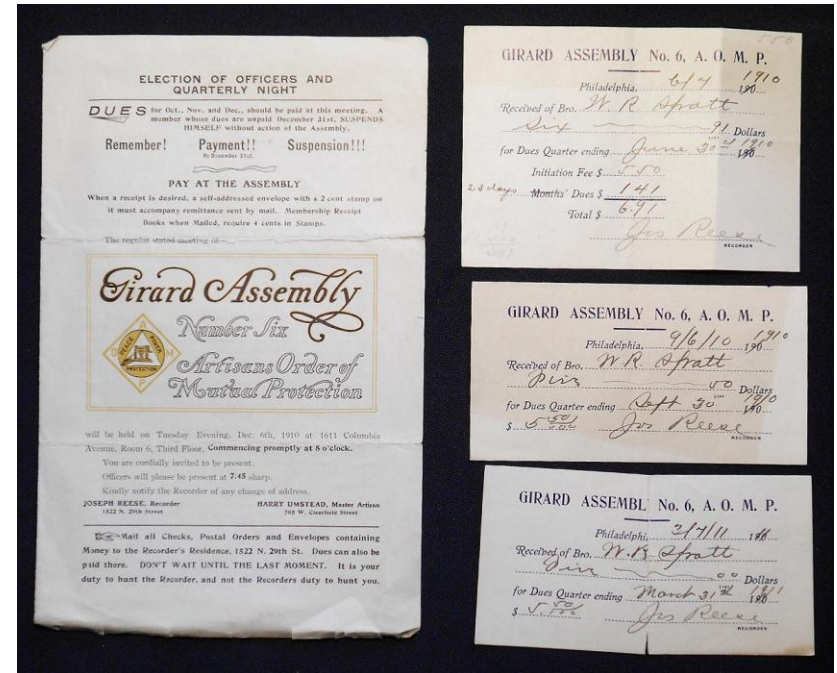 ELECTION OF OFFICERS AND
QUARTERLY NIGHT
DUES for Oct., Nov. and Dec., should be paid at this meeting. A
member whose dues are unpaid December 31st, SUSPENDS
HIMSELF without action of the Assembly.
Remember! Payment!! Suspension!!!
By December 31st.
PAY AT THE ASSEMBLY
When a receipt is desired, a self-addressed envelope with a 2 cent stamp on
it must accompany remittance sent by mail. Membership Receipt
Books when Mailed, require 4 cents in Stamps.
The regular stated meeting of
Girard Assembly
Number Six
Artisans Order of
Mutual Protection
A
O M
P
PEACE POWER
PROTECTION
will be held on Tuesday Evening, Dec. 6th, 1910 at 1611 Columbia
Avenue, Room 6, Third Floor, Commencing promptly at 8 o'clock.
You are cordially invited to be present.
Officers will please be present at 7.45 sharp.
Kindly notify the Recorder of any change of address.
JOSEPH REESE, Recorder HARRY UMSTEAD, Master Artisan
1522 N. 29th Street 705 W. Clearfield Street
Mail all Checks, Postal Orders and Envelopes containing
Money to the Recorder's Residence, 1522 N. 29th St. Dues can also be
paid there. DON'T WAIT UNTIL THE LAST MOMENT. It is your
duty to hunt the Recorder, and not the Recorders duty to hunt you.
550
GIRARD ASSEMBLY No. 6, A. O. M. P.
Philadelphia, 6/7 1910 190
Received of Bro. W. R. Spratt
Six 91 Dollars
for Dues Quarter ending June 30 1910 190
Initiation Fee $ 5 50
23 days Months' Dues $ 1 41
Total $ 6.91
Jos Reese
RECORDER
GIRARD ASSEMBLY No. 6, A. O. M. P.
Philadelphia, 9/6/10 1910 190
Received of Bro. W. R. Spratt
Five 50 Dollars
for Dues Quarter ending Sept 30 1910 190
$ 5 50/100
Jos Reese
RECORDER
GIRARD ASSEMBL No. 6, A. O. M. P.
Philadelphi 3/7/11
Received of Bro. W. R. Spratt
Five Dollars
for Dues Quarter ending March 31 1911 190
$ 5.50/100
Jos Reese
RECORDER